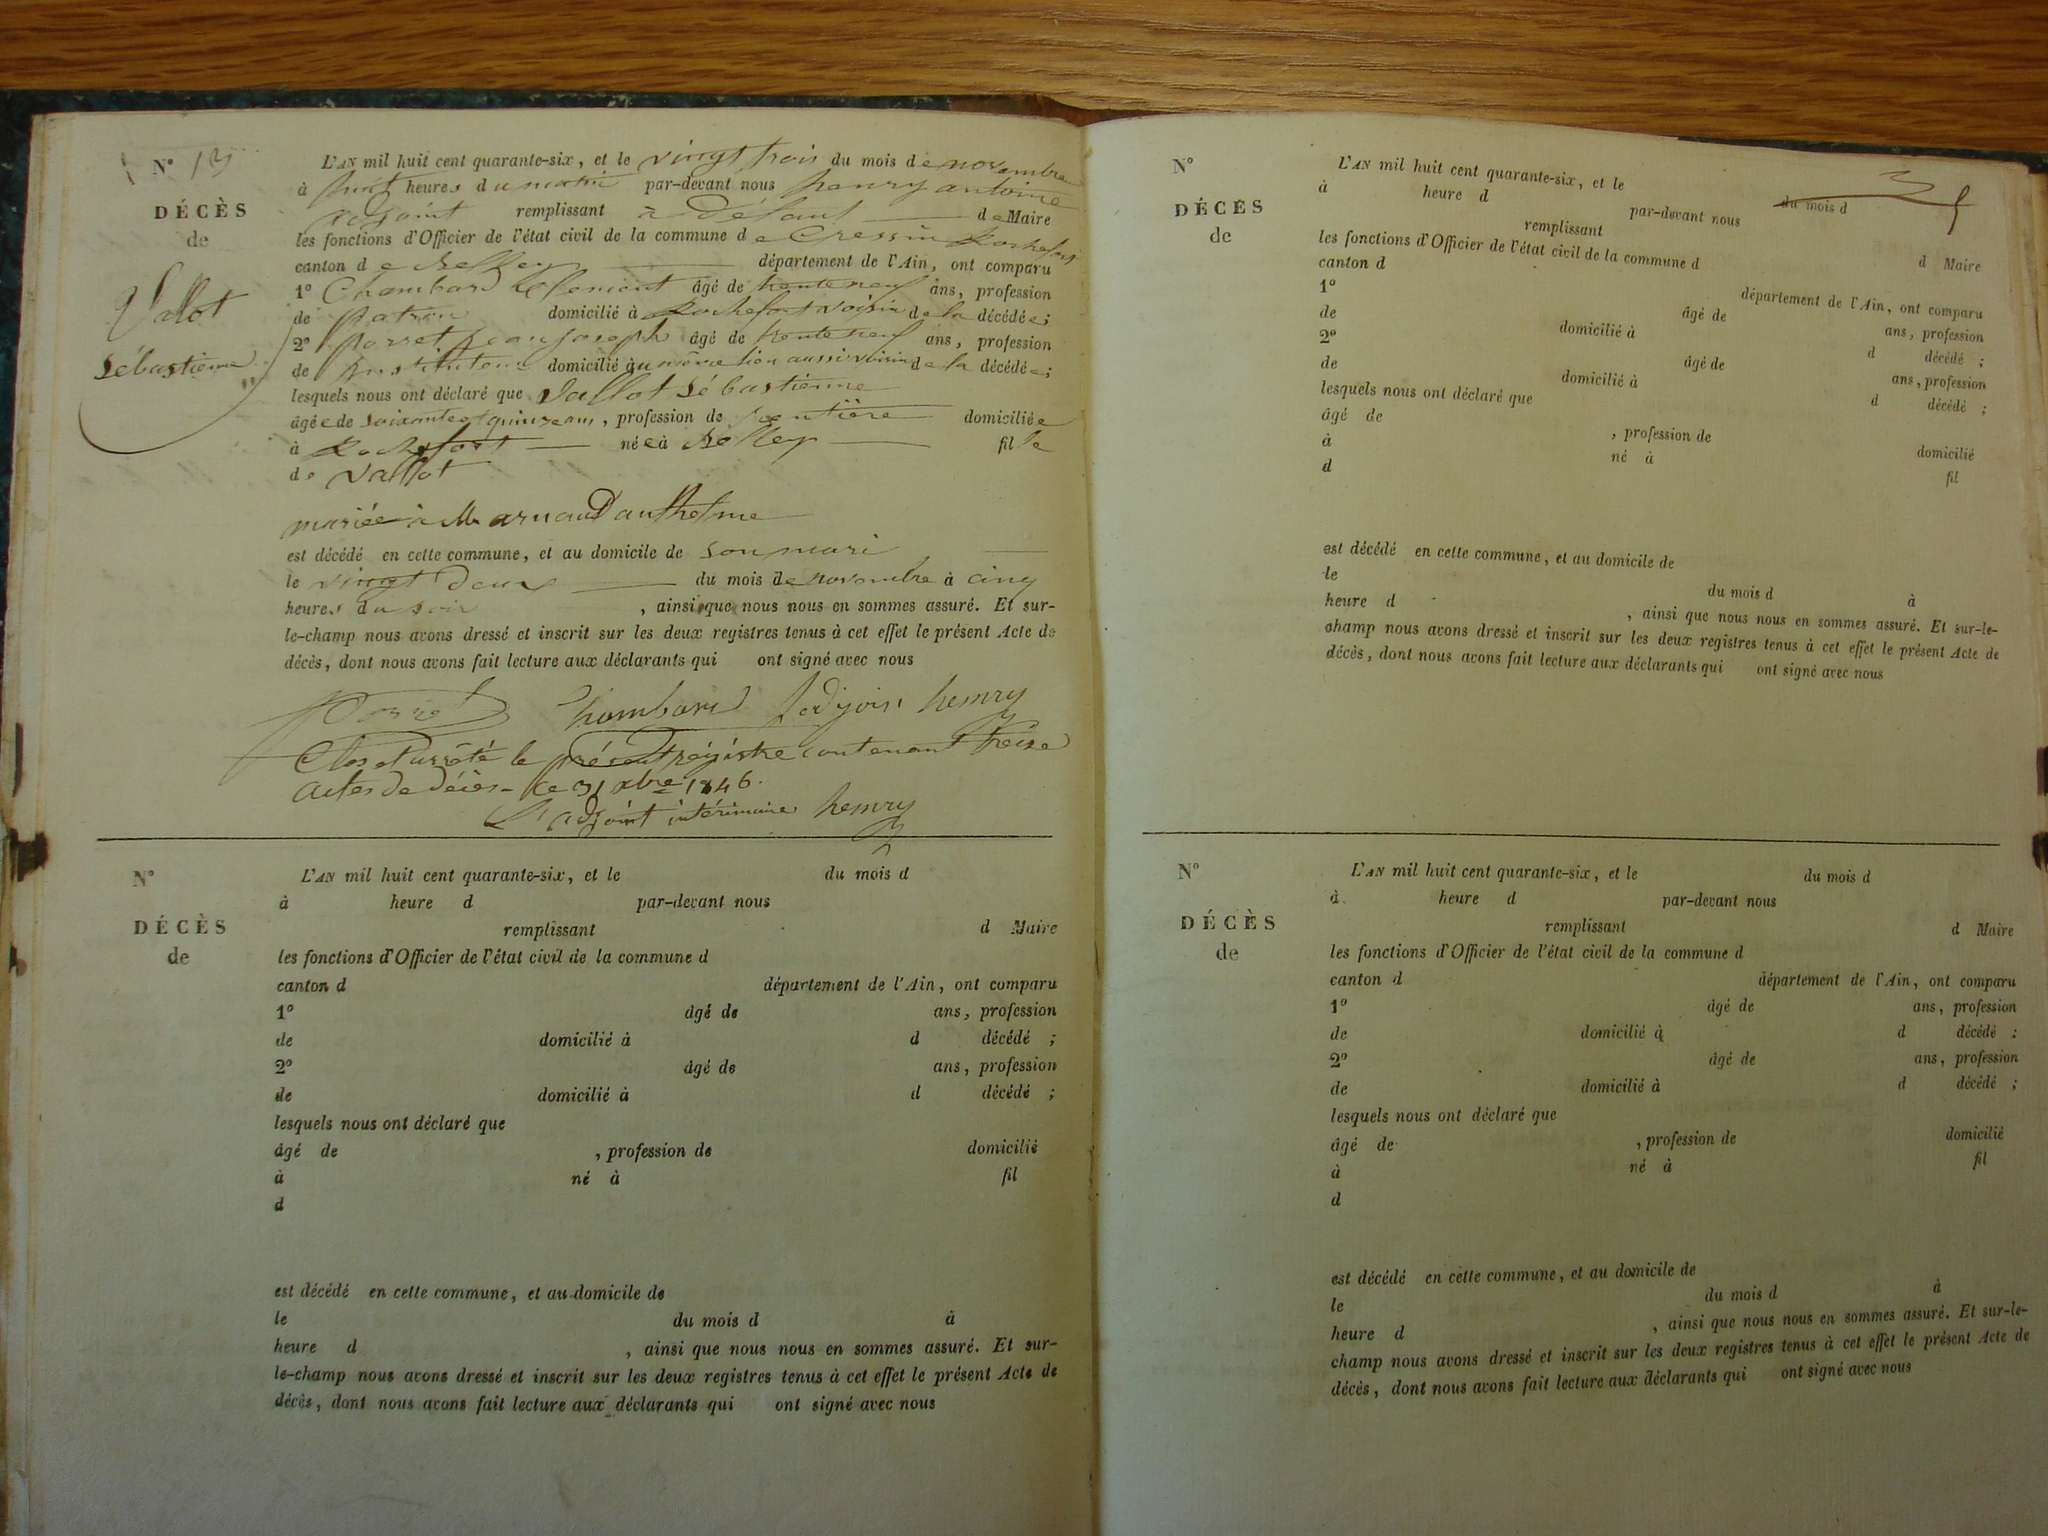 N° 13
DÉCÈS
de
Vallot
Sébastienne
L'AN mil huit cent quarante-six, et le vingt trois du mois de novembre
à huit heures du matin par-devant nous henry antoine
adjoint remplissant à Défaut de Maire
les fonctions d'Officier de l'état civil de la commune de Cressin Rochefort
canton de Belley département de l'Ain, ont comparu
1° Chambard Clement âgé de trente neuf ans, profession
de domicilié à Rochefort voisin de la décédée;
2° Porret jean joseph âgé de trente neuf ans, profession
de instituteur domicilié au même lieu aussi voisin de la décédée;
lesquels nous ont déclaré que Vallot Sébastienne
âgée de soixante et quinze ans, profession de rentière domiciliée
à Rochefort née à Belley fille
de Vallot
mariée à Marnaud anthelme
est décédé en cette commune, et au domicile de son mari
le vingt deux du mois de novembre à cinq
heures du soir , ainsi que nous nous en sommes assuré. Et sur-
le-champ nous avons dressé et inscrit sur les deux registres tenus à cet effet le présent Acte de
décès, dont nous avons fait lecture aux déclarants qui ont signé avec nous
Porret Chambard L'adjoint henry
Clos et arrêté le présent régistre contenant treize
actes de décès - le 31 xbre 1846.
L'adjoint intérimaire henry
N°
DÉCÈS
de
L'AN mil huit cent quarante-six, et le du mois d
à heure d par-devant nous
remplissant d Maire
les fonctions d'Officier de l'état civil de la commune d
canton d département de l'Ain, ont comparu
1° âgé de ans, profession
de domicilié à d décédé ;
2° âgé de ans, profession
de domicilié à d décédé ;
lesquels nous ont déclaré que
âgé de , profession de domicilié
à né à fil
d
est décédé en cette commune, et au domicile de
le du mois d à
heure d , ainsi que nous nous en sommes assuré. Et sur-
le-champ nous avons dressé et inscrit sur les deux registres tenus à cet effet le présent Acte de
décès, dont nous avons fait lecture aux déclarants qui ont signé avec nous
N°
DÉCÈS
de
L'AN mil huit cent quarante-six, et le du mois d
à heure d par-devant nous
remplissant d Maire
les fonctions d'Officier de l'état civil de la commune d
canton d département de l'Ain, ont comparu
1° âgé de ans, profession
de domicilié à d décédé ;
2° âgé de ans, profession
de domicilié à d décédé ;
lesquels nous ont déclaré que
âgé de , profession de domicilié
à né à fil
d
est décédé en cette commune, et au domicile de
le du mois d à
heure d , ainsi que nous nous en sommes assuré. Et sur-le-
champ nous avons dressé et inscrit sur les deux registres tenus à cet effet le présent Acte de
décès, dont nous avons fait lecture aux déclarants qui ont signé avec nous
N°
DÉCÈS
de
L'AN mil huit cent quarante-six, et le du mois d
à heure d par-devant nous
remplissant d Maire
les fonctions d'Officier de l'état civil de la commune d
canton d département de l'Ain, ont comparu
1° âgé de ans, profession
de domicilié à d décédé ;
2° âgé de ans, profession
de domicilié à d décédé ;
lesquels nous ont déclaré que
âgé de , profession de domicilié
à né à fil
d
est décédé en cette commune, et au domicile de
le du mois d à
heure d , ainsi que nous nous en sommes assuré. Et sur-le-
champ nous avons dressé et inscrit sur les deux registres tenus à cet effet le présent Acte de
décès, dont nous avons fait lecture aux déclarants qui ont signé avec nous